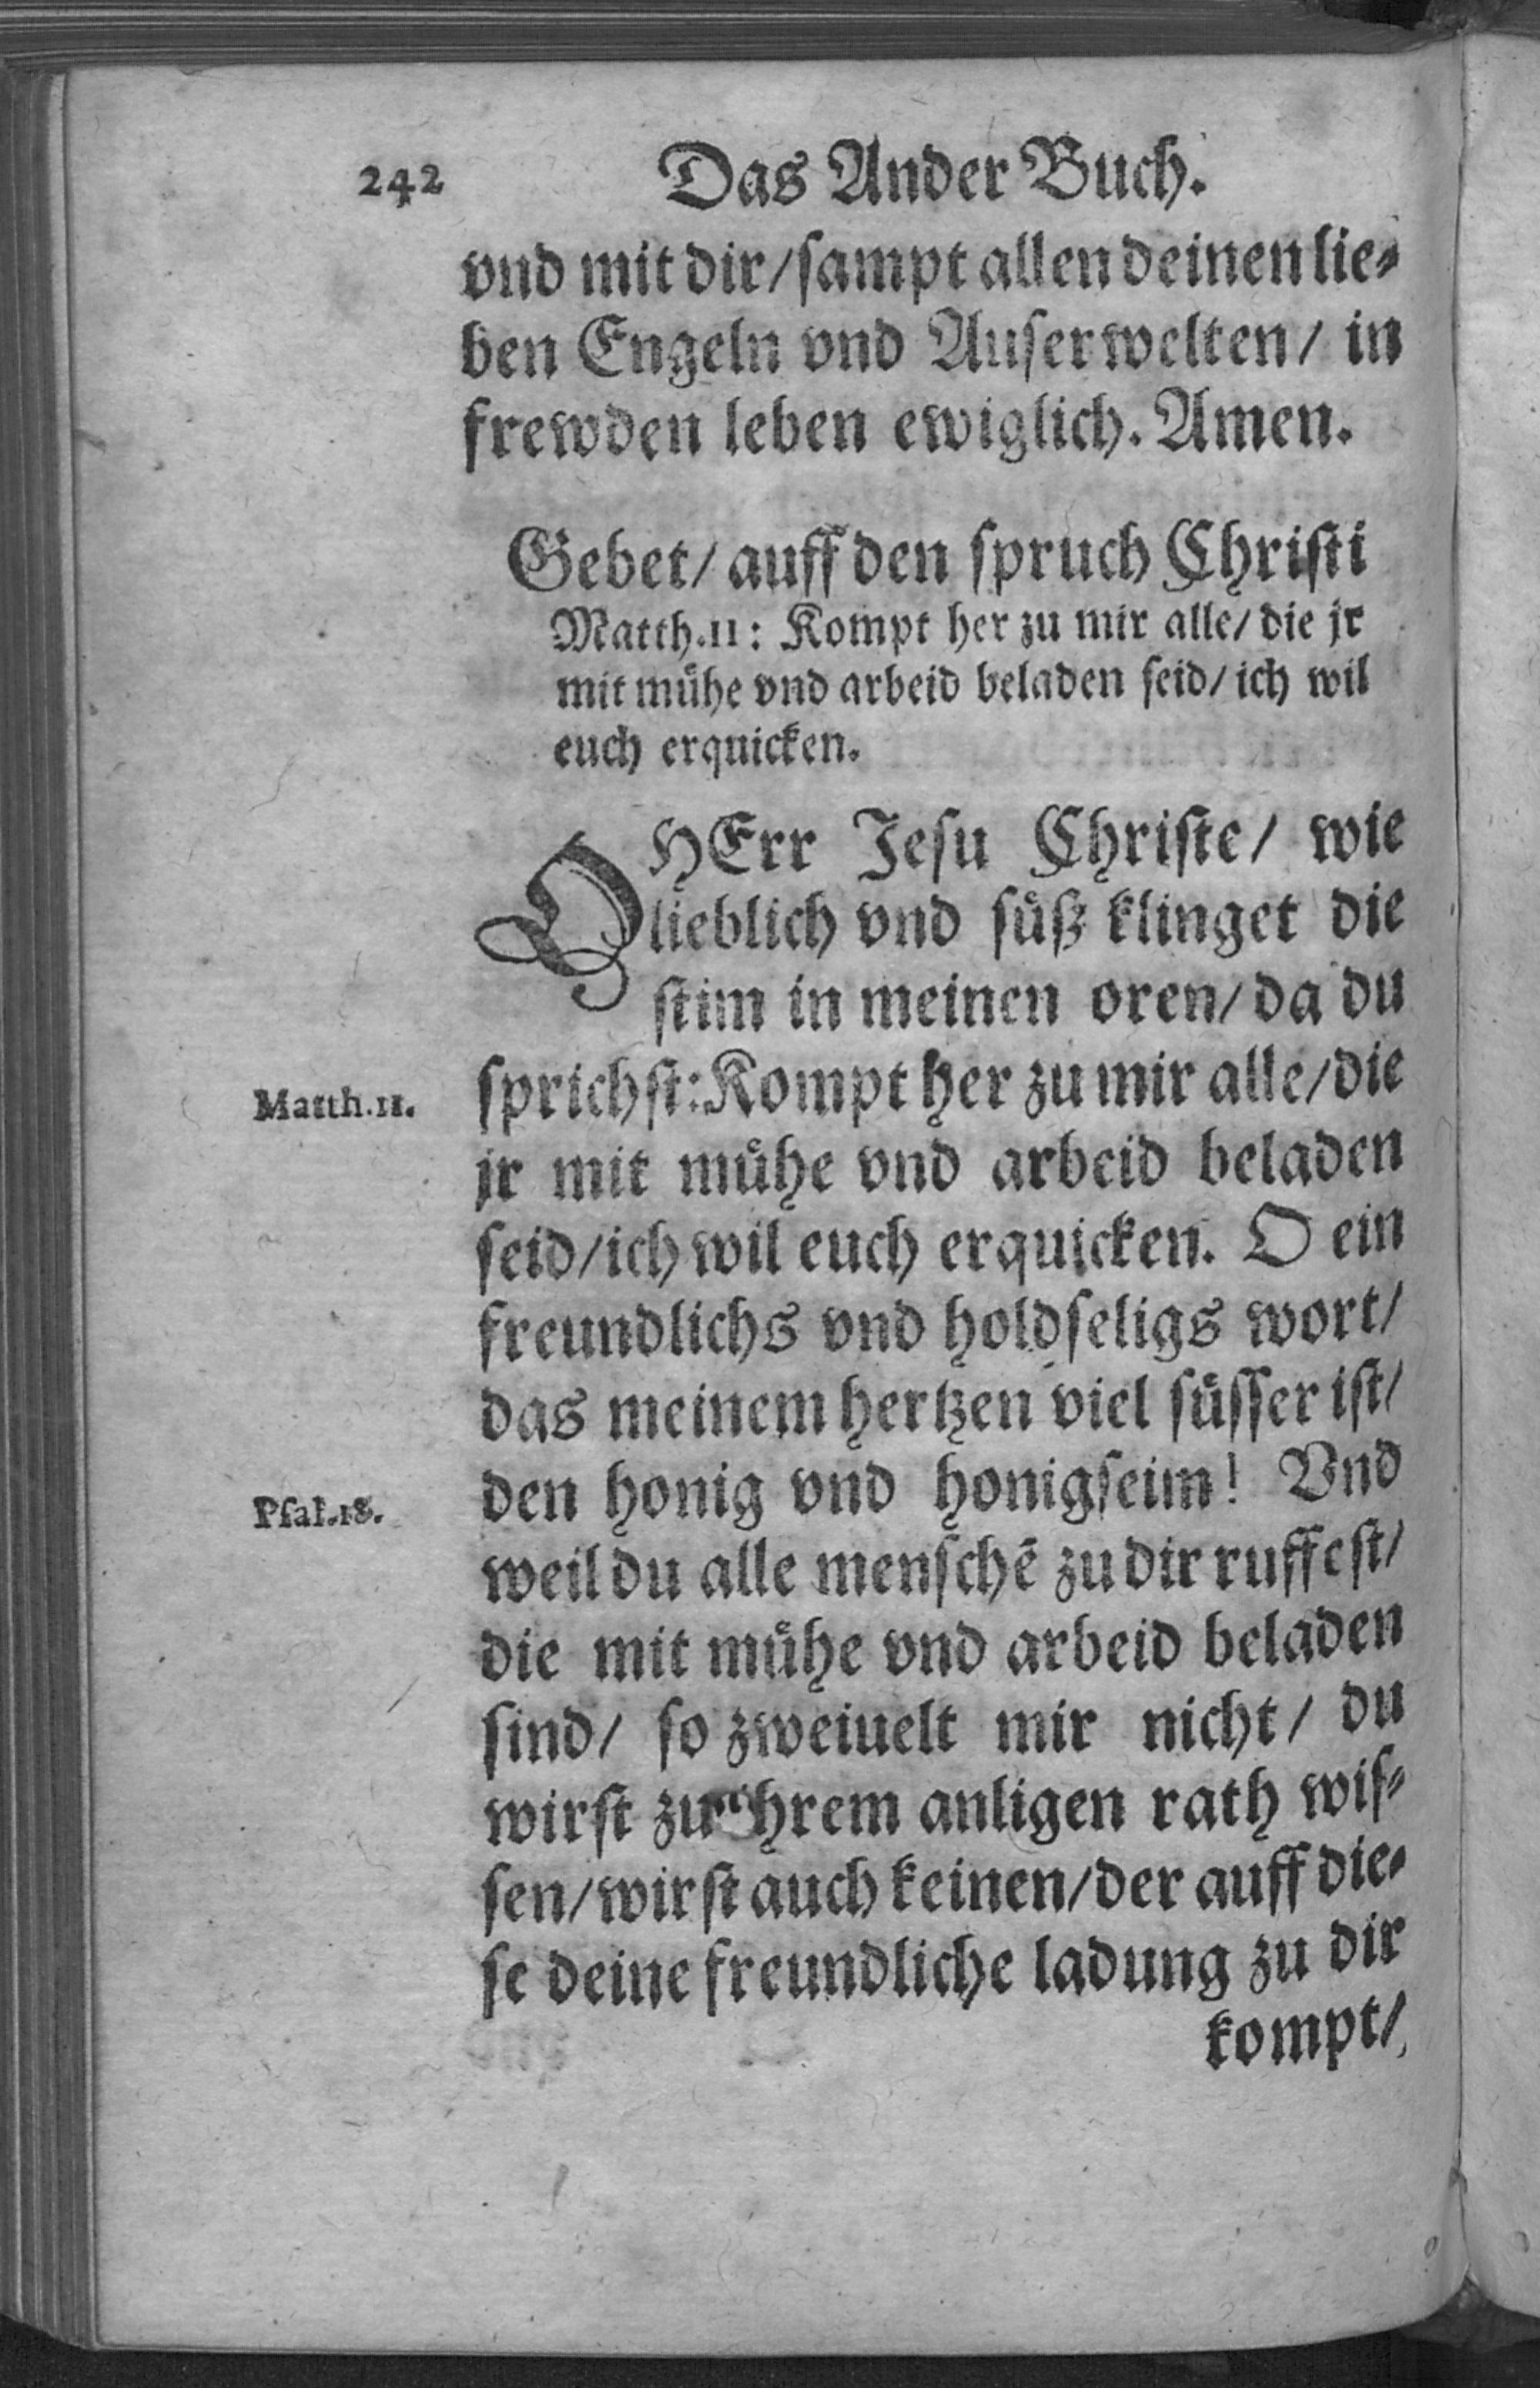 242 Das Ander Buch.
vnd mit dir/ sampt allen deinen lie⸗
ben Engeln vnd Auserwelten/ in
frewden leben ewiglich. Amen.
Gebet/ auff den spruch Christi
Matth.11: Kompt her zu mir alle/ die jr
mit mühe vnd arbeid beladen seid/ ich wil
euch erquicken.
O HErr Jesu Christe/ wie
lieblich vnd süß klinget die
stim in meinen oren/ da du
sprichst: Kompt her zu mir alle/ die
Matth.11.
jr mit mühe vnd arbeid beladen
seid/ ich wil euch erquicken. O ein
freundlichs vnd holdseligs wort/
das meinem hertzen viel süsser ist/
den honig vnd honigseim! Vnd
Psal.18.
weil du alle menschē zu dir ruffest/
die mit mühe vnd arbeid beladen
sind/ so zweiuelt mir nicht/ du
wirst anligen rath wis⸗
sen/ wirst auch keinen/ der auff die⸗
se deine freundliche ladung zu dir
kompt/